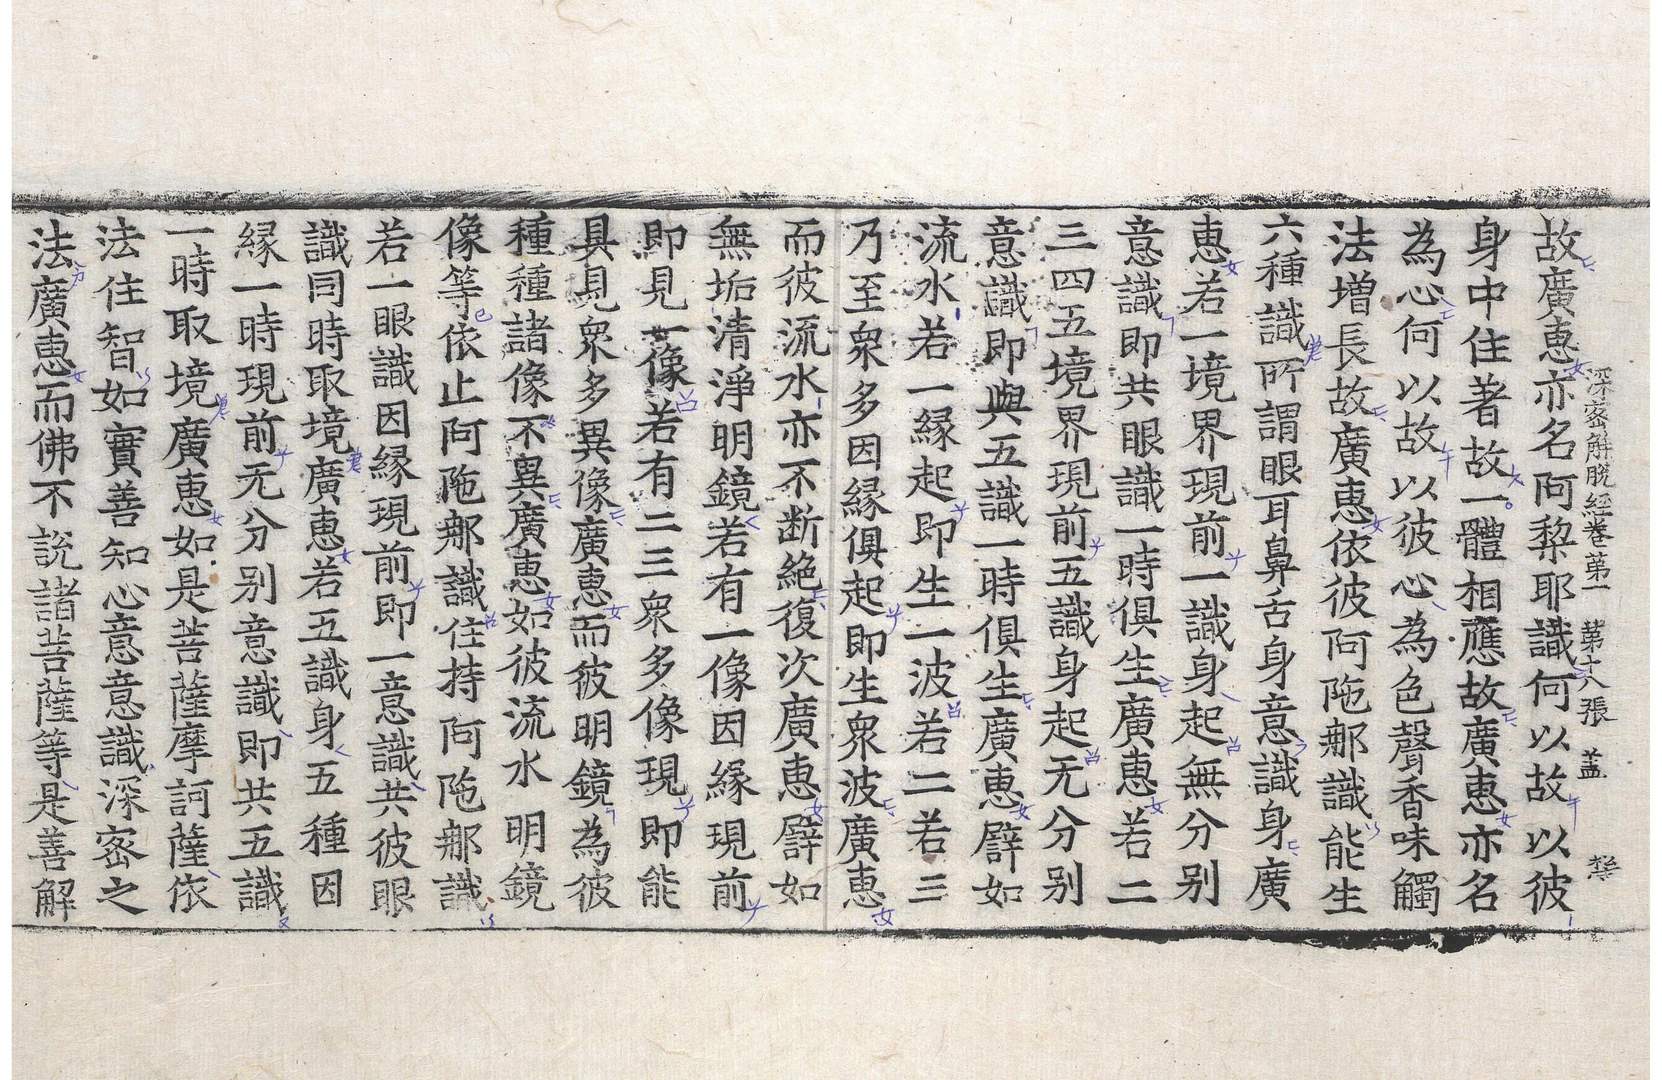 深密解脫經卷第一 第十八張 盖
故廣惠亦名阿梨耶識何以故以彼
身中住著故一體相應故廣惠亦名
為心何以故以彼心為色聲香味觸
法增長故廣惠依彼阿陁䣯識能生
六種識所謂眼耳鼻舌身意識身廣
惠若一境界現前一識身起無分别
意識即共眼識一時俱生廣惠若二
三四五境界現前五識身起无分别
意識即與五識一時俱生廣惠譬如
流水若一緣起即生一波若二若三
乃至衆多因緣俱起即生衆波廣惠
而彼流水亦不断絶復次廣惠譬如
無垢清淨明鏡若有一像因緣現前
即見一像若有二三衆多像現即能
具見衆多異像廣惠而彼明鏡為彼
種種諸像不異廣惠如彼流水明鏡
像等依止阿陁䣯識住持阿陁䣯識
若一眼識因緣現前即一意識共彼眼
識同時取境廣惠若五識身五種因
緣一時現前无分别意識即共五識
一時取境廣惠如是菩薩摩訶薩依
法住智如實善知心意意識深密之
法廣惠而佛不說諸菩薩等是善解